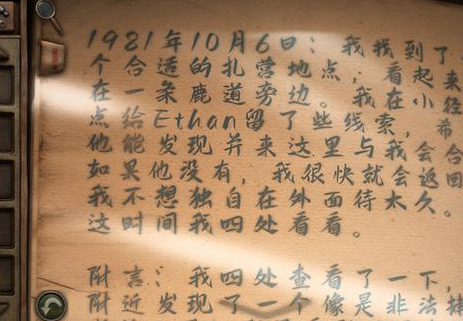 1921年10月6日：我找到了
个合适的扎营地点，看起来
在一条鹿道旁边。我在小径
点给Ethan留了些线索，希
他能发现并来这里与我会合
如果他没有，我很快就会返回
我不想独自在外面待太久。
这时间我四处看看。
附言：我四处查看了一下，
附近发现了一个像是非法